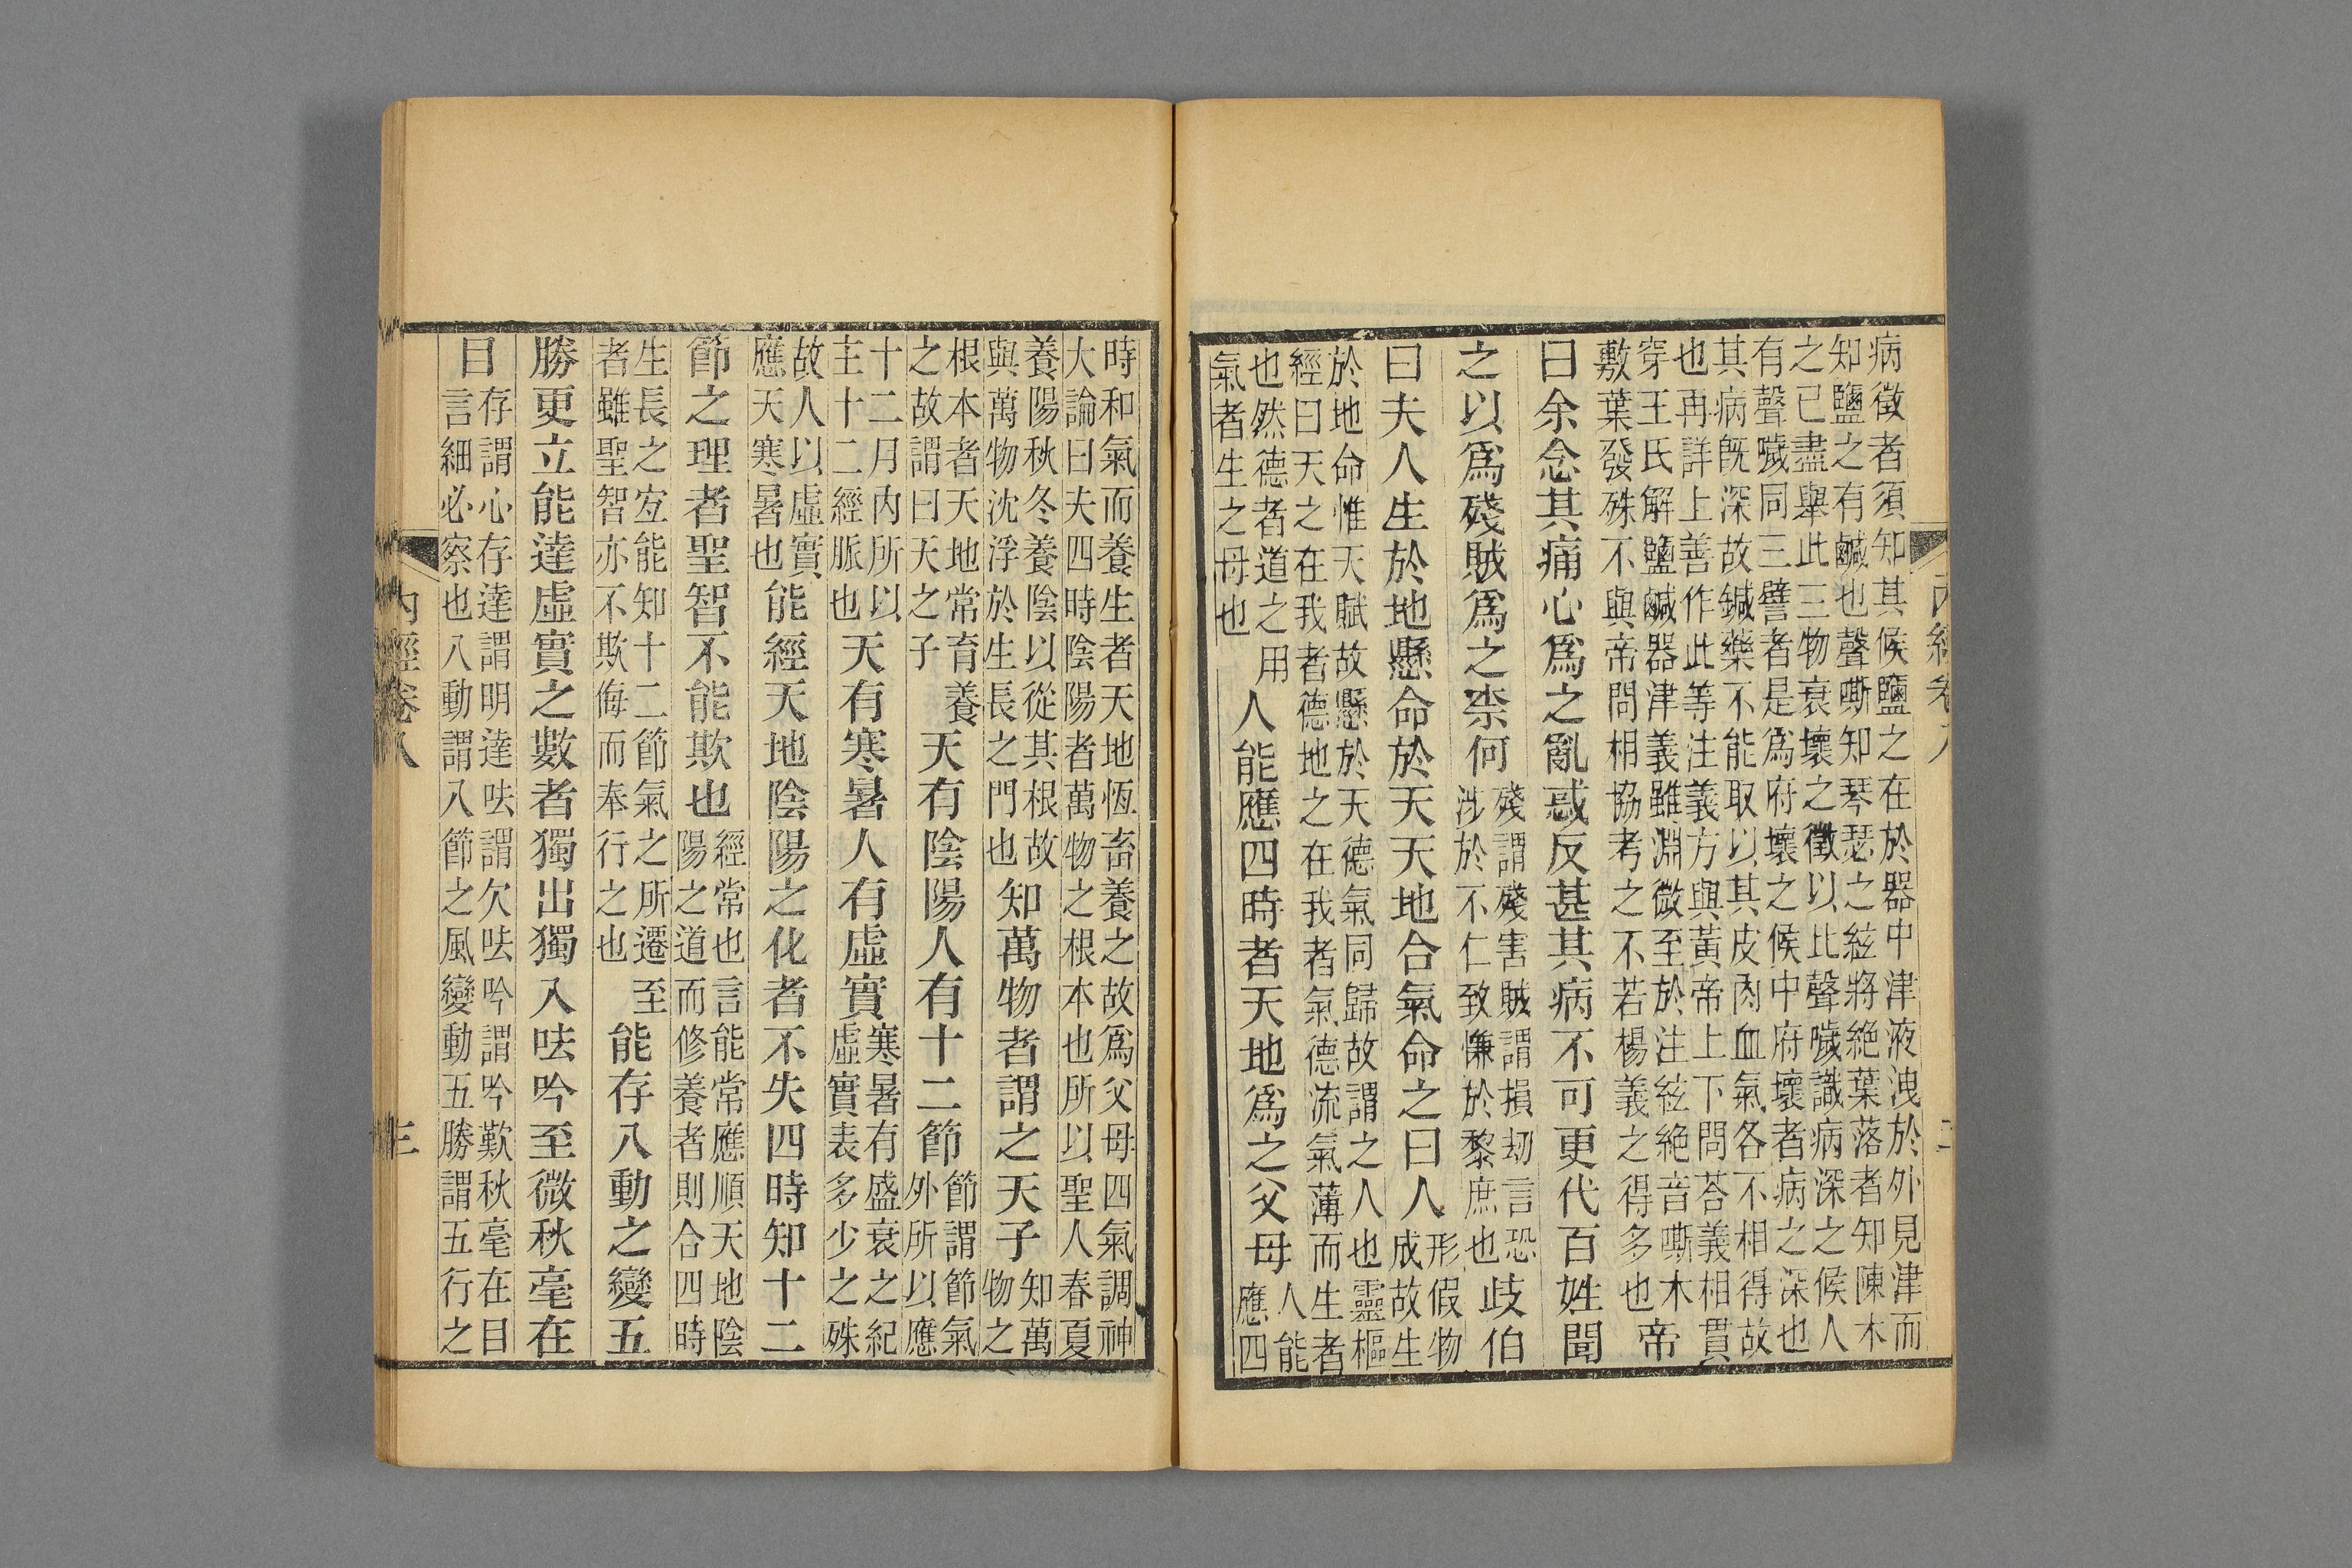 內經卷八
二
病徵者須知其候鹽之在於器中津液洩於外見津而
知鹽之有鹹也聲嘶知琴瑟之絃將絕葉落者知陳木
之已盡舉此三物衰壞之徵以比聲噦識病深之候人
有聲噦同三譬者是爲府壞之候中府壞者病之深也
其病既深故鍼藥不能取以其皮肉血氣各不相得故
也再詳上善作此等注義方與黃帝上下問荅義相貫
穿王氏解鹽鹹器津義雖淵微至於注絃絕音嘶木
敷葉發殊不與帝問相協考之不若楊義之得多也
帝
曰余念其痛心爲之亂惑反甚其病不可更代百姓聞
之以爲殘賊爲之柰何
殘謂殘害賊謂損刼言恐
涉於不仁致慊於黎庶也
歧伯
曰夫人生於地懸命於天天地合氣命之曰人
形假物
成故生
於地命惟天賦故懸於天德氣同歸故謂之人也靈樞
經曰天之在我者德地之在我者氣德流氣薄而生者
也然德者道之用
氣者生之母也
人能應四時者天地爲之父母
人能
應四
時和氣而養生者天地恆畜養之故爲父母四氣調神
大論曰夫四時陰陽者萬物之根本也所以聖人春夏
養陽秋冬養陰以從其根故
與萬物沈浮於生長之門也
知萬物者謂之天子
知萬
物之
根本者天地常育養
之故謂曰天之子
天有陰陽人有十二節
節謂節氣
外所以應
十二月內所以
主十二經脈也
天有寒暑人有虛實
寒暑有盛衰之紀
虛實表多少之殊
故人以虛實
應天寒暑也
能經天地陰陽之化者不失四時知十二
節之理者聖智不能欺也
經常也言能常應順天地陰
陽之道而修養者則合四時
生長之宐能知十二節氣之所遷至
者雖聖智亦不欺侮而奉行之也
能存八動之變五
勝更立能達虛實之數者獨出獨入呿吟至微秋毫在
目
存謂心存達謂明達呿謂欠呿吟謂吟歎秋毫在目
言細必察也八動謂八節之風變動五勝謂五行之
內經卷八
三